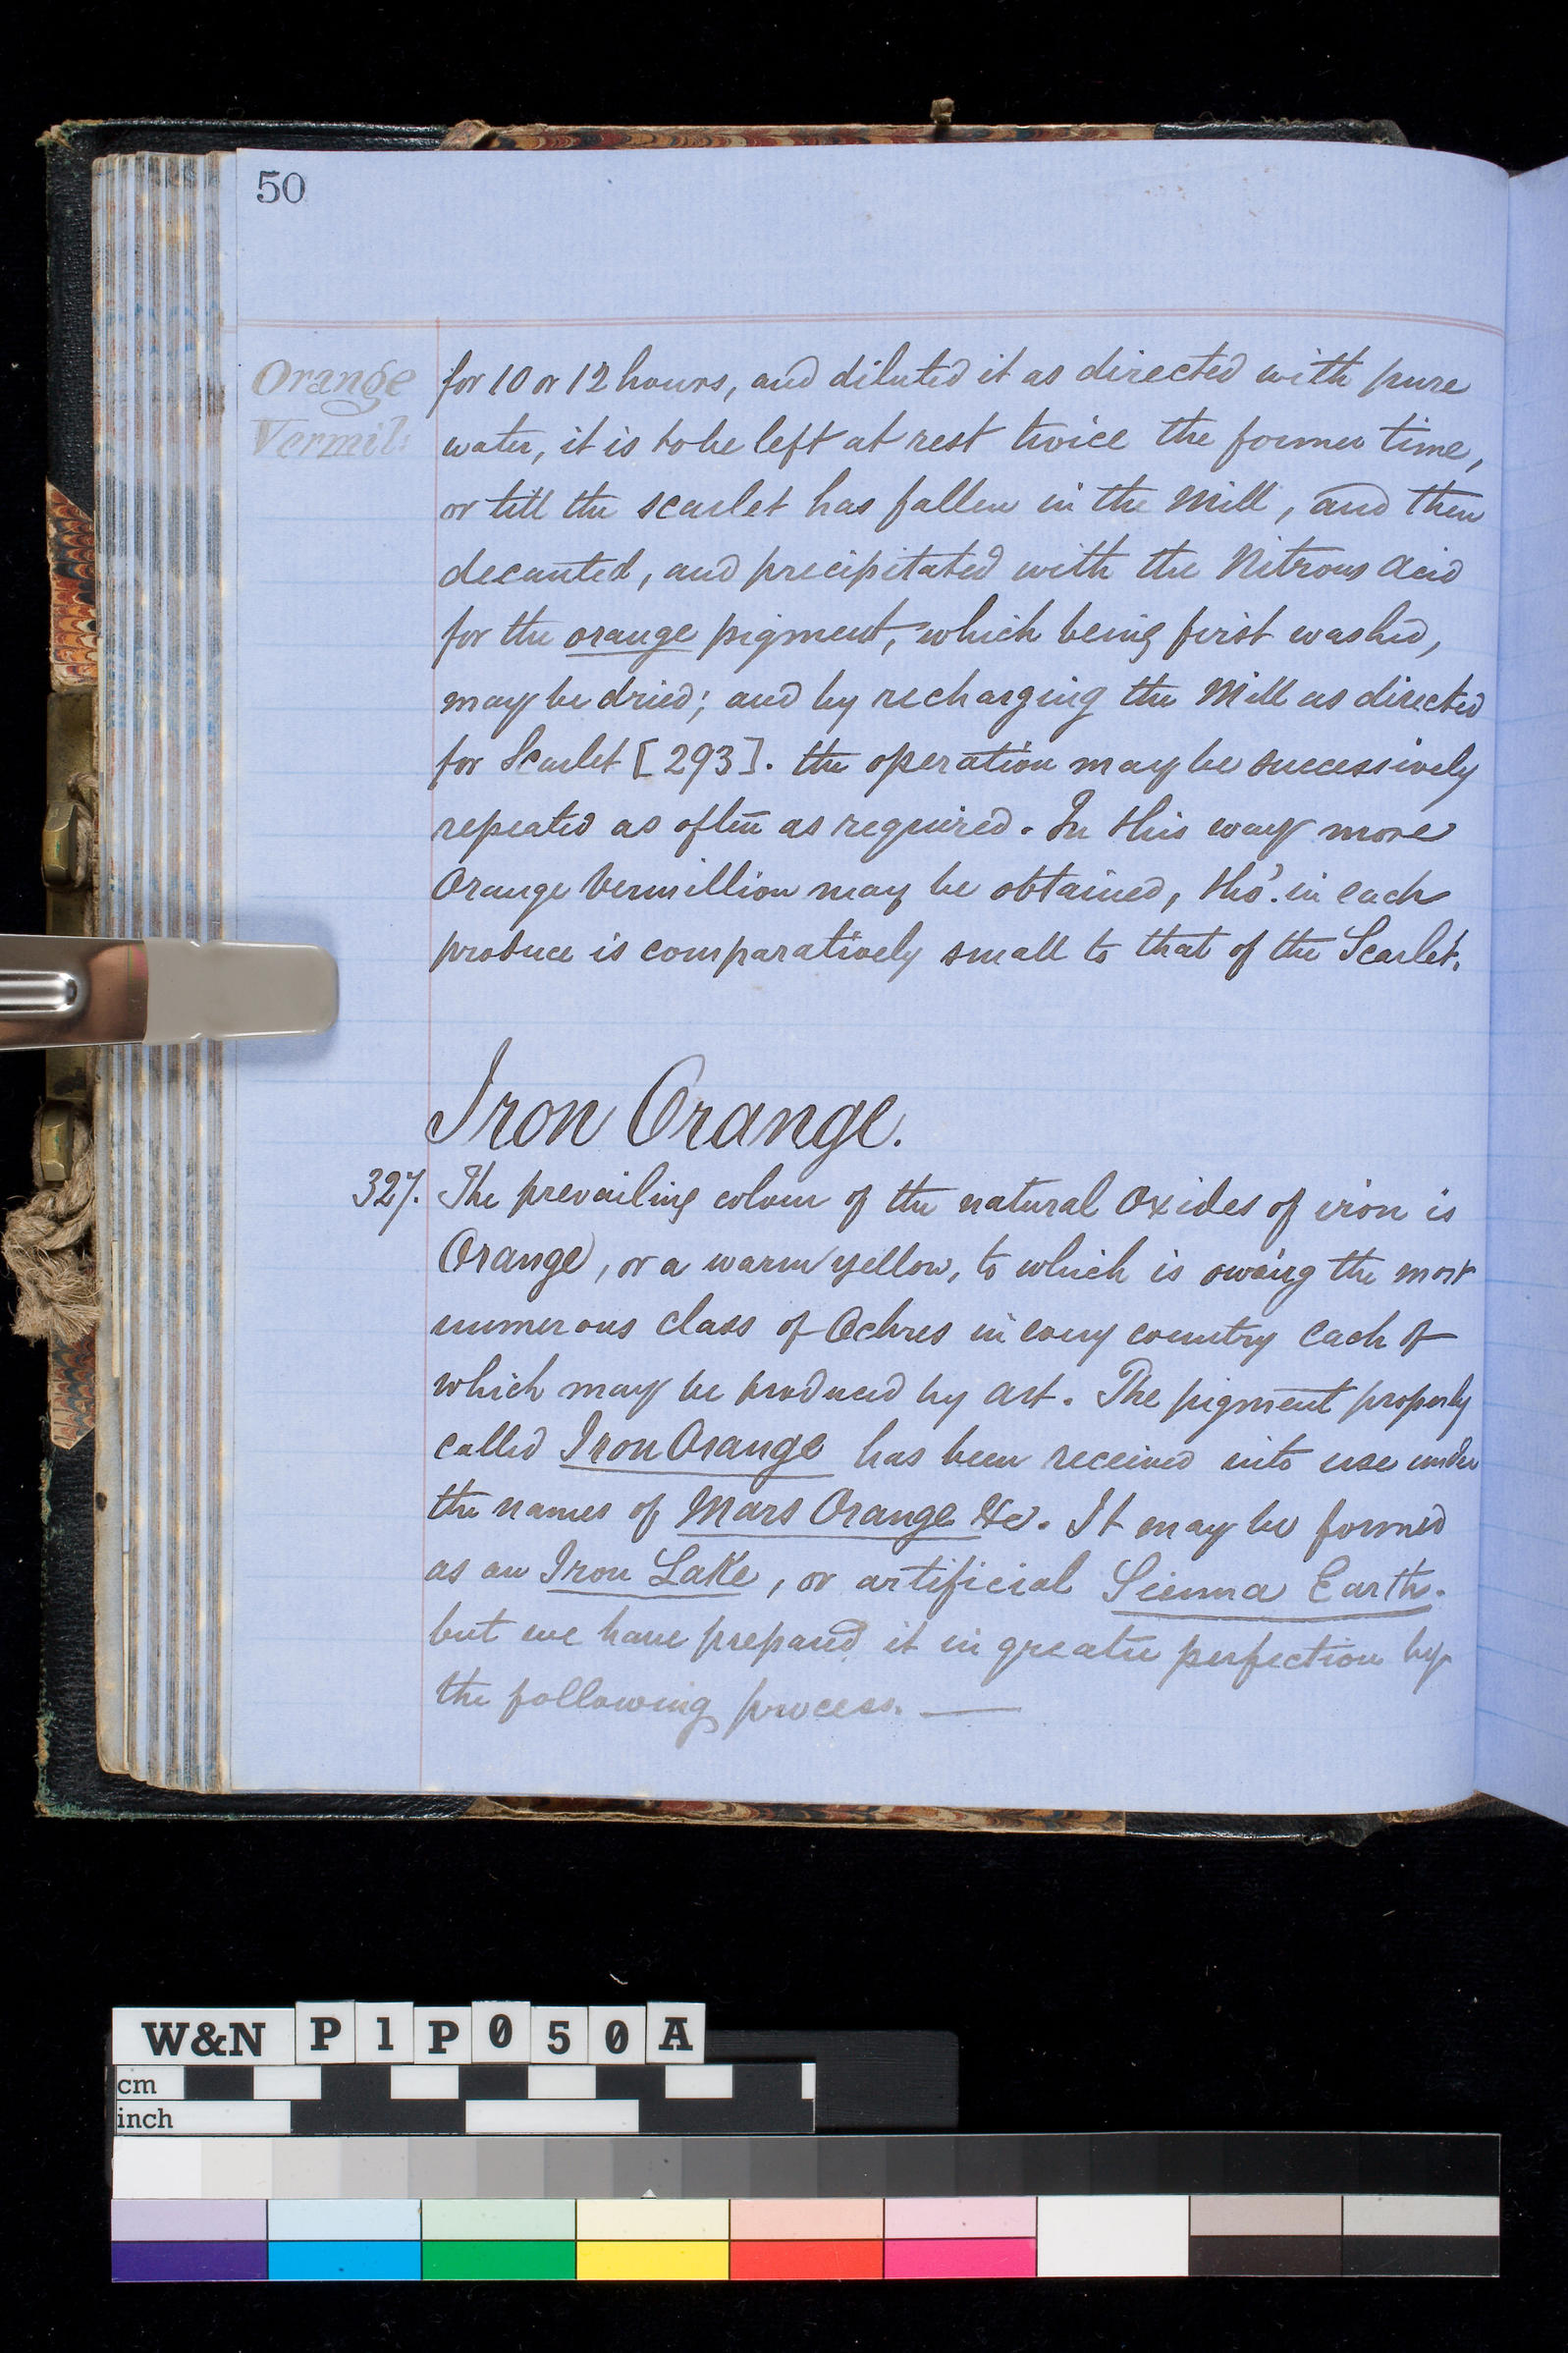 50
Orange
Vermil:
for 10 or 12 hours, and diluted it as directed with pure
water, it is to be left at rest twice the former time,
or till the scarlet has fallen in the Mill, and then
decanted, and precipitated with the Nitrous Acid
for the orange pigment, which being first washed,
may be dried; and by recharging the Mill as directed
for Scarlet [293]. the operation may be successively
repeated as often as required. In this way more
Orange Vermillion may be obtained, tho'. in each
produce is comparatively small to that of the Scarlet.
Iron Orange.
327. The prevailing colour of the natural Oxides of iron is
Orange, or a warm yellow, to which is owing the most
numerous class of Ochres in every country each of
which may be produced by art. The pigment properly
called Iron Orange has been received into use under
the names of Mars Orange &c. It may be formed
as an Iron Lake, or artificial Sienna Earth.
but we have prepared it in greater perfection by
the following process. —
W&N P1P050A
cm
inch